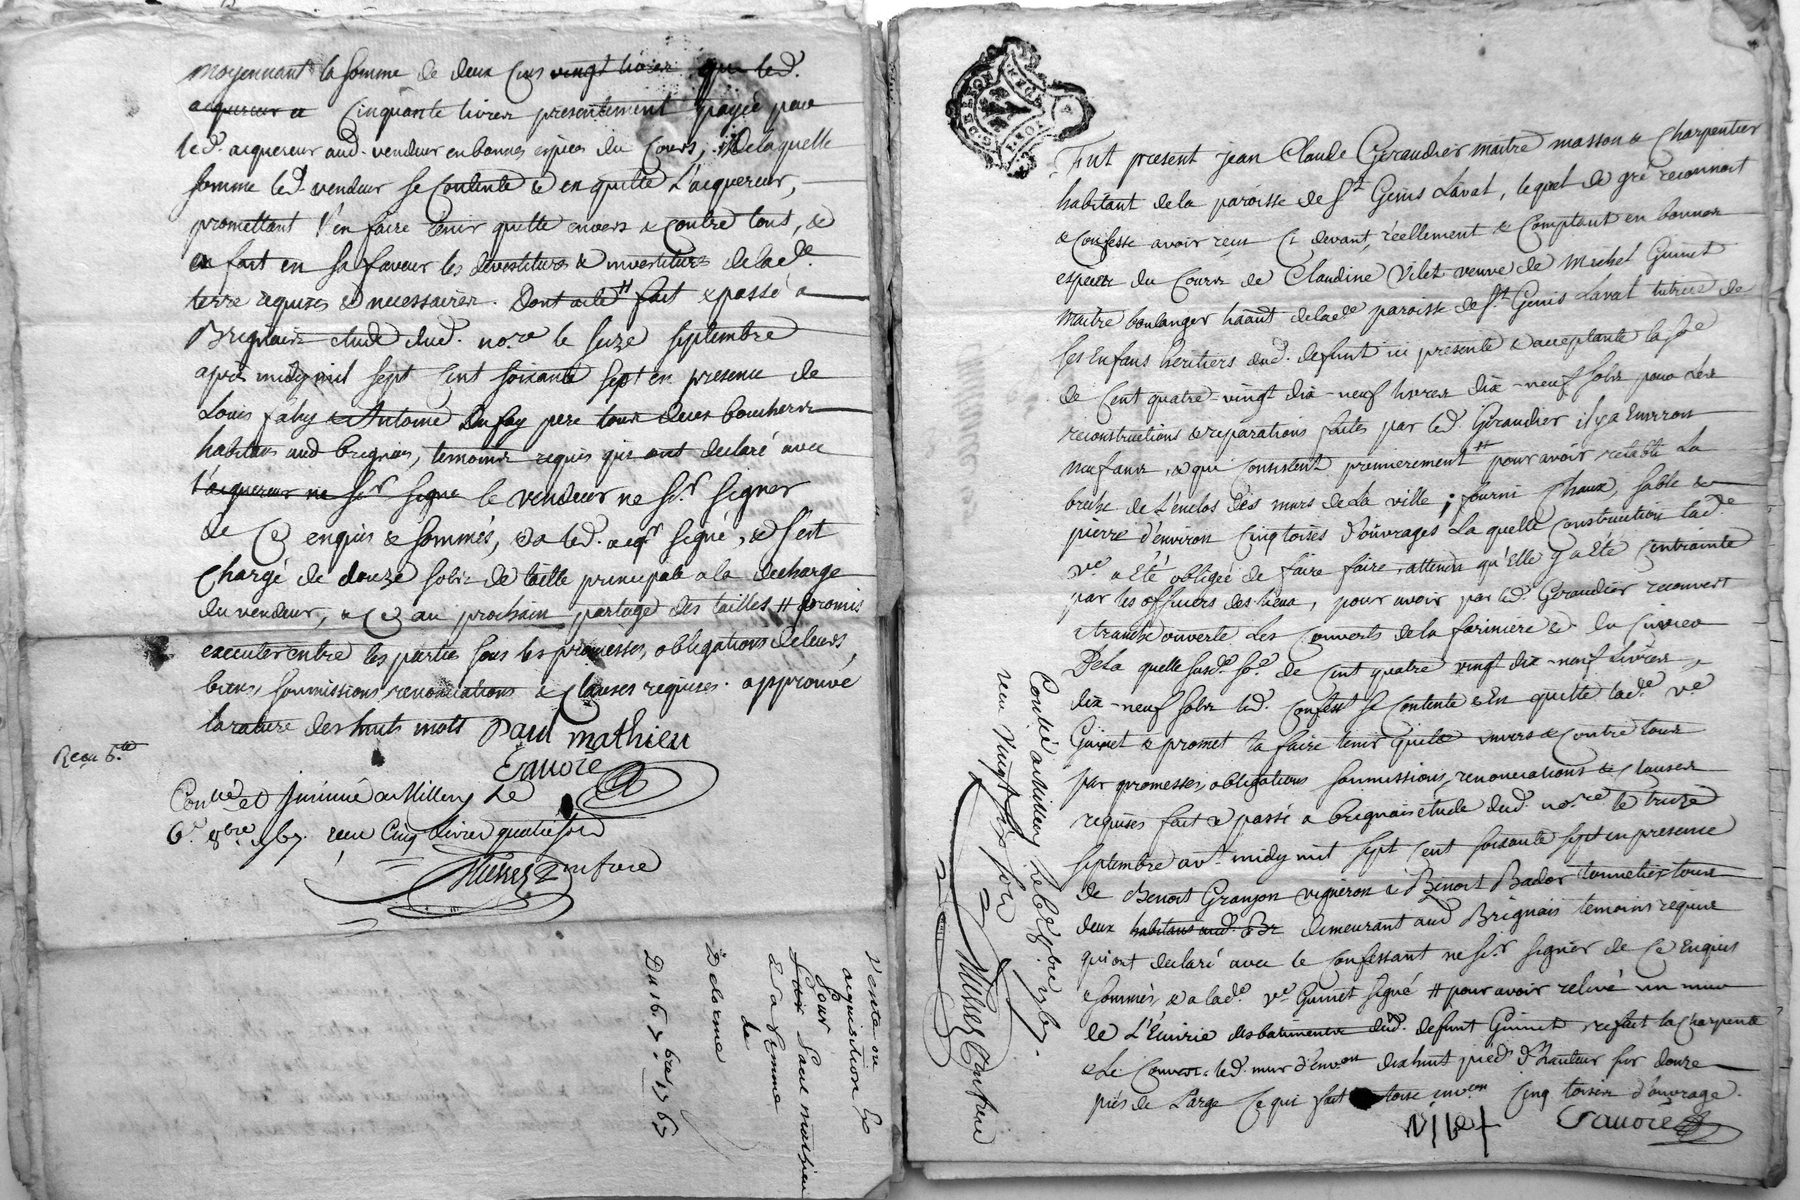 moyennant la somme de deux cens vingt livres que led.
acquereur a cinquante livres presentement payée par
led. acquereur aud. vendeur en bonnes espices du Cours, de laquelle
somme led. vendeur se Contente & en quitte L'acquereur,
promettant l'en faire tenir quitte envers & contre tous, &
en fait en sa faveur les devestitures & investitures delade.
terre requises & necessaires. Dont acte fait & passé a
Brignais etude dud. nore. le seize septembre
après midy mil sept cent soixante sept en presence de
Louis faby & Antoine Dufay pere tous deux bouchers
habitans aud brignais, temoins requis qui ont declaré avec
l'acquereur ne sir signe le vendeur ne sir signer
de ce enquis & sommés, & a led. acqr signé, & s'est
Chargé de douze sols de taille principale a la decharge
du vendeur, & ce au prochain partage des tailles # promis
executer entre les parties sous les promesses, obligations de leurs
biens, soumissions, renonciations & clauses requises. approuvé
la rature des huit mots Paul mathieu
Reçu 6.
Conlé et Insinué a Millery Le
6e 8bre 1767. reçu Cinq livres quatre sols
Vente ou
acquisition
Pour
Paul mathieu
a
de
Delorme
Du 16. 7.bre 1767
Fut present jean Claude Geraudier maitre masson & charpentier
habitant de la paroisse de St Genis Laval, lequel de gré reconnoit
& confesse avoir reçu Cy devant, réellement & comptant en bonnes
especes du Cours de Claudine Vilet veuve de Michel Guinet
maitre boulanger habant delade paroisse de St Genis Laval tutrice de
ses Enfans heritiers dud. defunt ici presente & acceptante la se
de Cent quatre-vingt dix-neuf livres dix-neuf sols pour les
reconstructions & reparations faites par led. Geraudier il y a Environ
neuf ans, & qui consistent premierement # pour avoir retabli La
breche de L'enclos des murs de La ville; fourni Chaux, sable &
pierre d'environ Cinq toises d'ouvrages La quelle construction lade
ve a Eté obligée de faire faire, attendu qu'Elle y a Eté Contrainte
par les officiers des lieux, pour avoir par led. Geraudier recouvert
a tranche ouverte Les Couverts de la fariniere & du
De La quelle susde se de cent quatre vingt dix-neuf Livres
dix-neuf sols led. Confesst se Contente & En quitte lade ve
Guinet & promet la faire tenir quitte envers & contre tous
par promesses, obligations soumissions, renonciations & clauses
requises fait & passé a brignais etude dud. nore le treize
septembre avt midy mil sept cent soixante sept en presence
de Benoit Granjon vigneron & Benoit Bador tonnelier tous
deux habitans aud. Br demeurant aud Brignais temoins requis
qui ont declaré avec le Confessant ne sir signer de Ce Enquis
& sommés, & a lade. ve Guinet signé # pour avoir relevé un mur
de L'Ecurie des batimens dud. defunt Guinet refait la Charpente
& Le Couvert. led. mur d'Envon dixhuit pieds d'hauteur sur douze
pies de Large Ce qui fait toise envon Cinq toises d'ouvrage.
Vilet
Conlé a Millery Le
reçu Vingt six sols